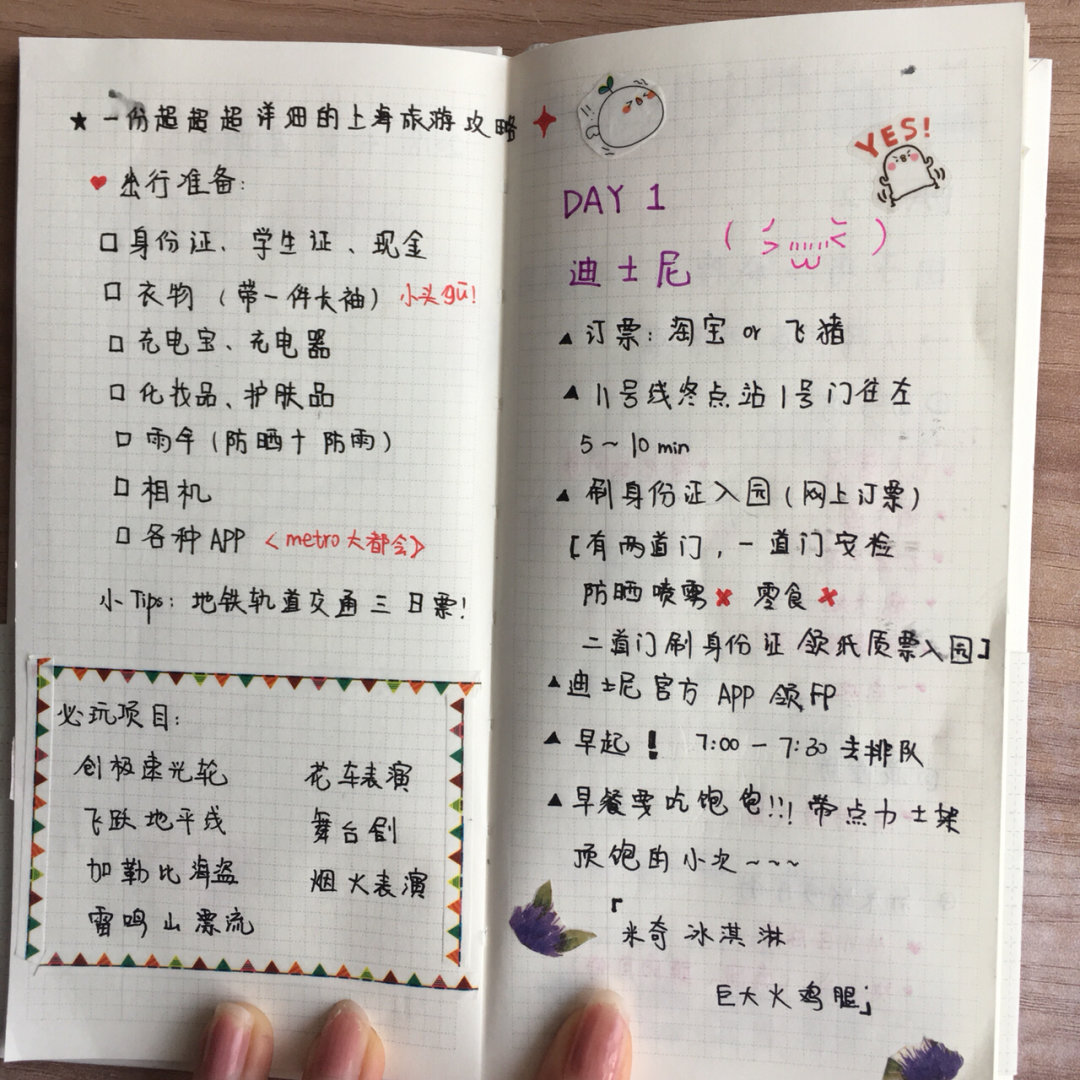 ★ 一份超超超详细的上海旅游攻略
♥ 出行准备:
□ 身份证、学生证、现金
□ 衣物（带一件长袖）小头gū!
□ 充电宝、充电器
□ 化妆品、护肤品
□ 雨伞（防晒+防雨）
□ 相机
□ 各种 APP <metro大都会>
小Tips: 地铁轨道交通三日票!
必玩项目:
创极速光轮 花车表演
飞跃地平线 舞台剧
加勒比海盗 烟火表演
雷鸣山漂流
YES!
DAY 1
迪士尼
▲ 订票: 淘宝 or 飞猪
▲ 11号线终点站1号门往左
5~10 min
▲ 刷身份证入园（网上订票）
[有两道门，一道门安检
防晒喷雾✘ 零食✘
二道门刷身份证 领纸质票入园]
▲迪士尼官方 APP 领FP
▲ 早起! 7:00-7:30 去排队
▲早餐要吃饱饱!!! 带点力士架
顶饱的小次~~~
「米奇冰淇淋
巨大火鸡腿」